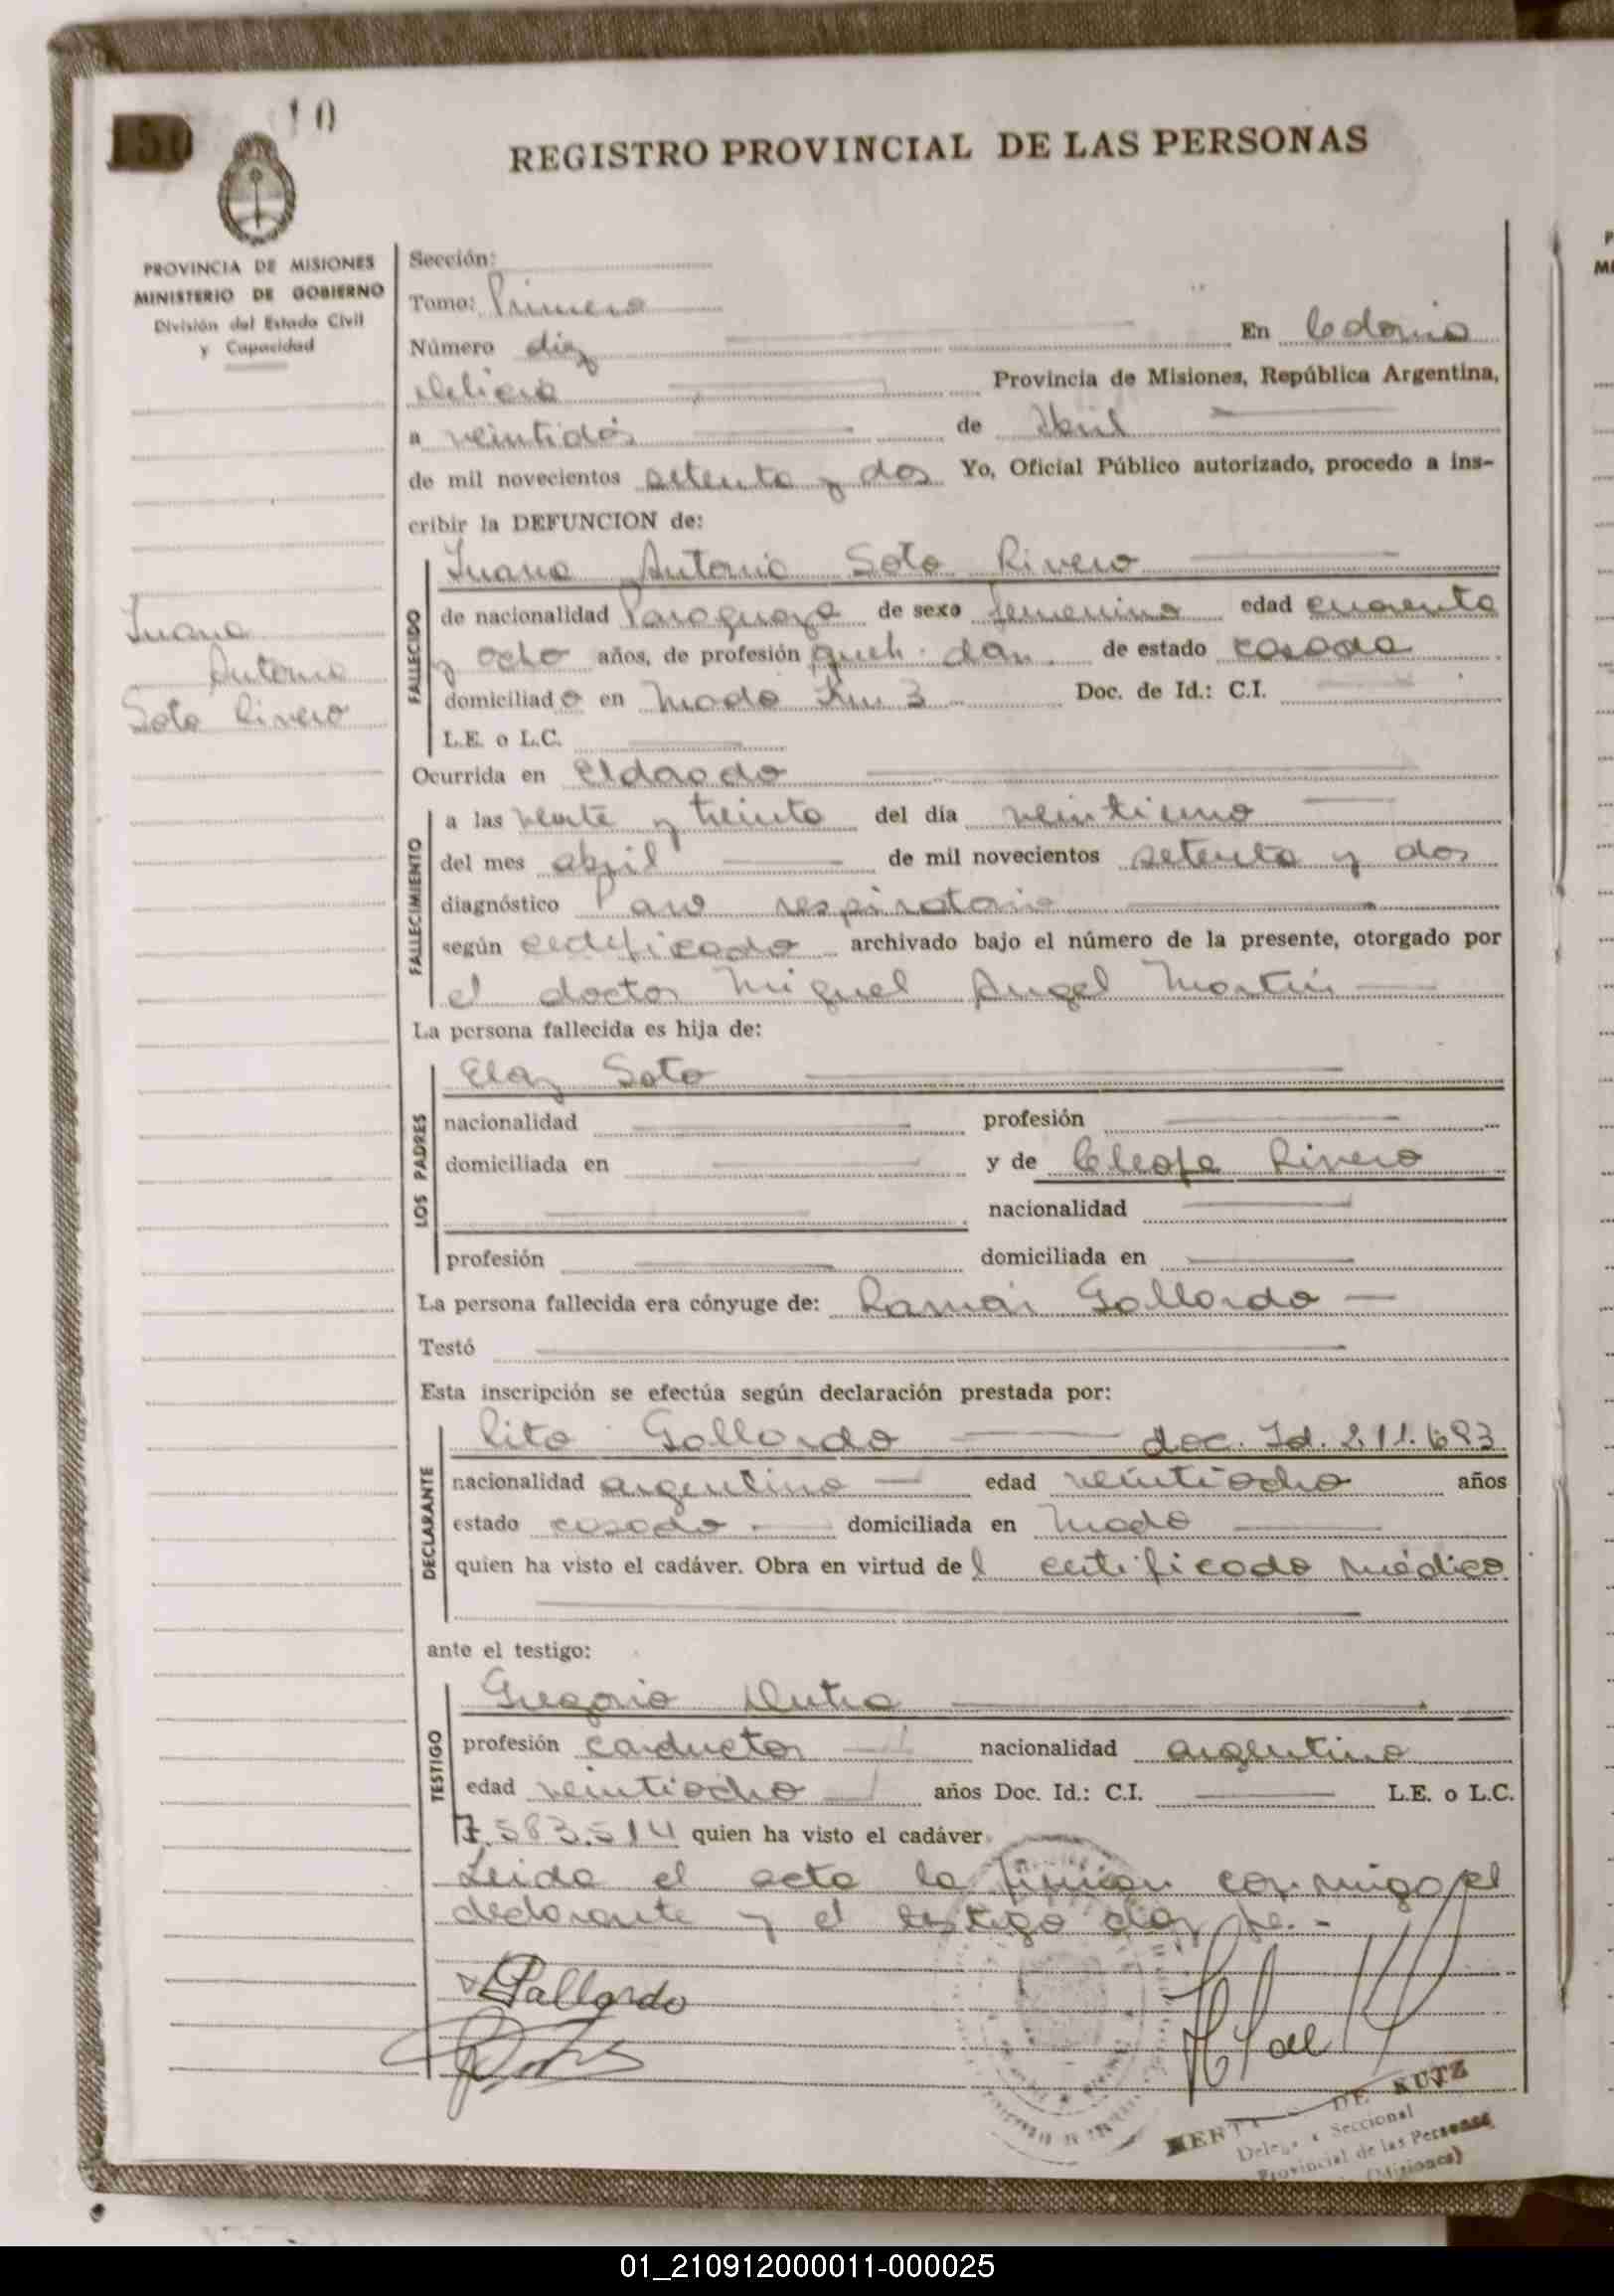 150
10
REGISTRO PROVINCIAL DE LAS PERSONAS
PROVINCIA DE MISIONES
MINISTERIO DE GOBIERNO
División del Estado Civil
y Capacidad
Juana
Antonia
Soto Rivero
Sección:
Tomo: Primero
Número diez En Colonia
Delicia Provincia de Misiones, República Argentina,
a veintidós de Abril
de mil novecientos setenta y dos Yo, Oficial Público autorizado, procedo a ins-
cribir la DEFUNCION de:
FALLECIDO
Juana Antonia Soto Rivero
de nacionalidad Paraguaya de sexo femenino edad cuarenta
y ocho años, de profesión queh. dom. de estado casada
domiciliada en Mado Km 3 Doc. de Id.: C.I.
L.E. o L.C.
Ocurrida en Eldorado
FALLECIMIENTO
a las veinte y treinta del día veintiuno
del mes abril de mil novecientos setenta y dos
diagnóstico Paro respiratorio
según certificado archivado bajo el número de la presente, otorgado por
el doctor Miguel Angel Martín
La persona fallecida es hija de:
LOS PADRES
Soto
nacionalidad profesión
domiciliada en y de Cleofe Rivero
nacionalidad
profesión domiciliada en
La persona fallecida era cónyuge de: Ramón Gallardo
Testó
Esta inscripción se efectúa según declaración prestada por:
DECLARANTE
Gallardo doc. Id. 211.683
nacionalidad argentino edad veintiocho años
estado casado domiciliada en Mado
quien ha visto el cadáver. Obra en virtud del certificado médico
ante el testigo:
TESTIGO
Gregorio Dutra
profesión conductor nacionalidad argentino
edad veintiocho años Doc. Id.: C.I. L.E. o L.C.
7.583.514 quien ha visto el cadáver
Leida el acta la firman conmigo el
declarante y el testigo
Gallardo
DE KUTZ
Seccional
Provincial de las Personas
(Misiones)
01_210912000011-000025